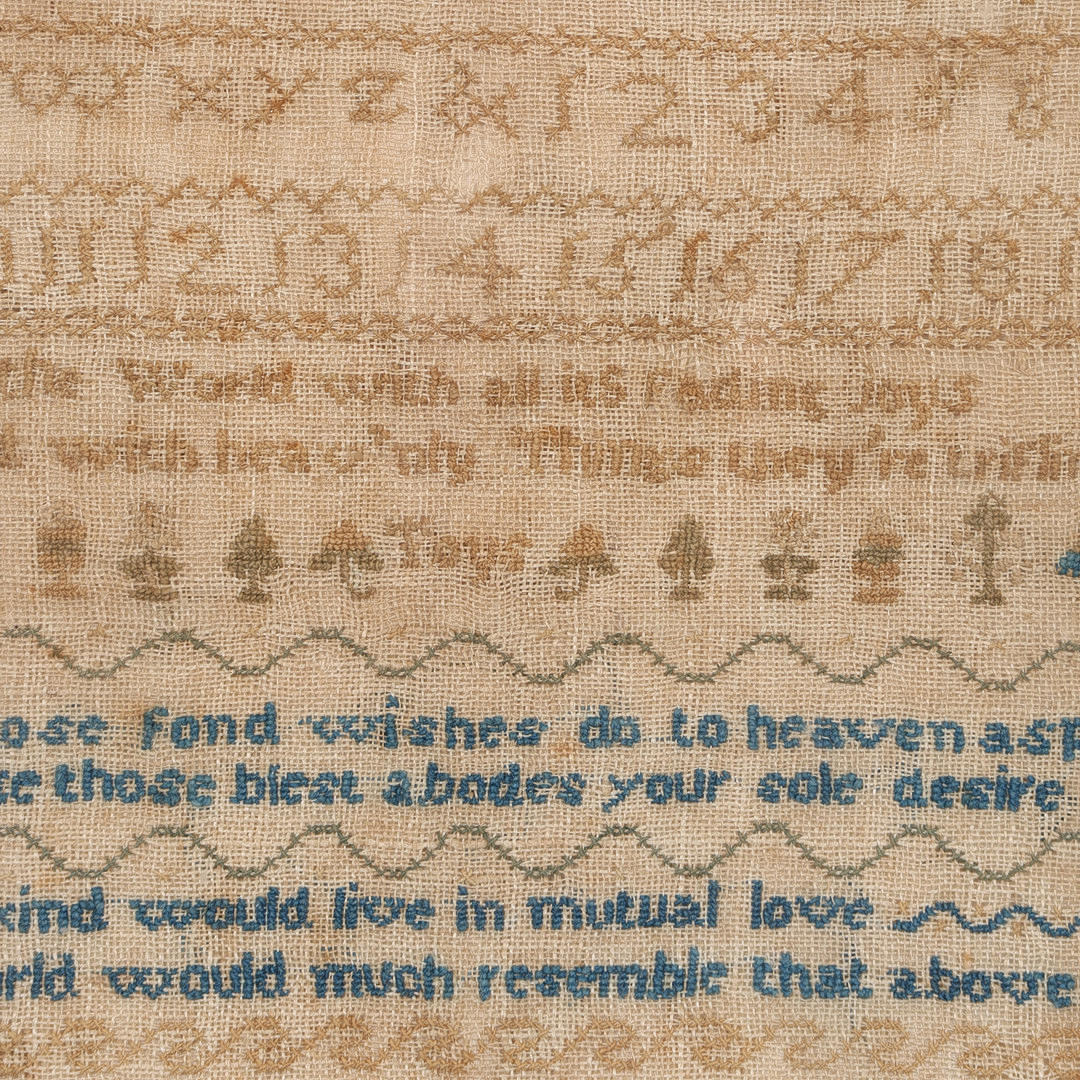 w x y z & 1 2 3 4 5 6
11 12 13 14 15 16 17 18 1
the World with all its fading Joys
with heav'nly Things they're trifling
Toys
ose fond wishes do to heaven asp
se those blest abodes your sole desire
kind would live in mutual love
orld would much resemble that above